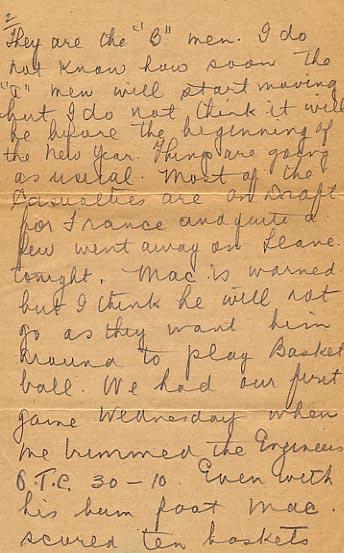 2
They are the "B" men. I do
not know how soon the
"A" men will start moving
but I do not think it will
be before the beginning of
the New Year. Things are going
as usual. Most of the
Casualties are on Draft
for France and quite a
few went away on Leave
tonight. Mac. is warned
but I think he will not
go as they want him
around to play Basket
ball. We had our first
game Wednesday when
we trimmed the Engineers
O.T.C. 30-10. Even with
his bum foot Mac.
scored ten baskets